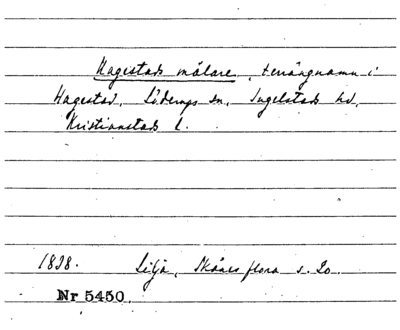 Hagestads mölare, terrängnamn i
Hagestad, Löderups sn, Ingelstads hd,
Kristianstads l.
1838. Lilja, Skånes flora s. 20
Nr 5450.